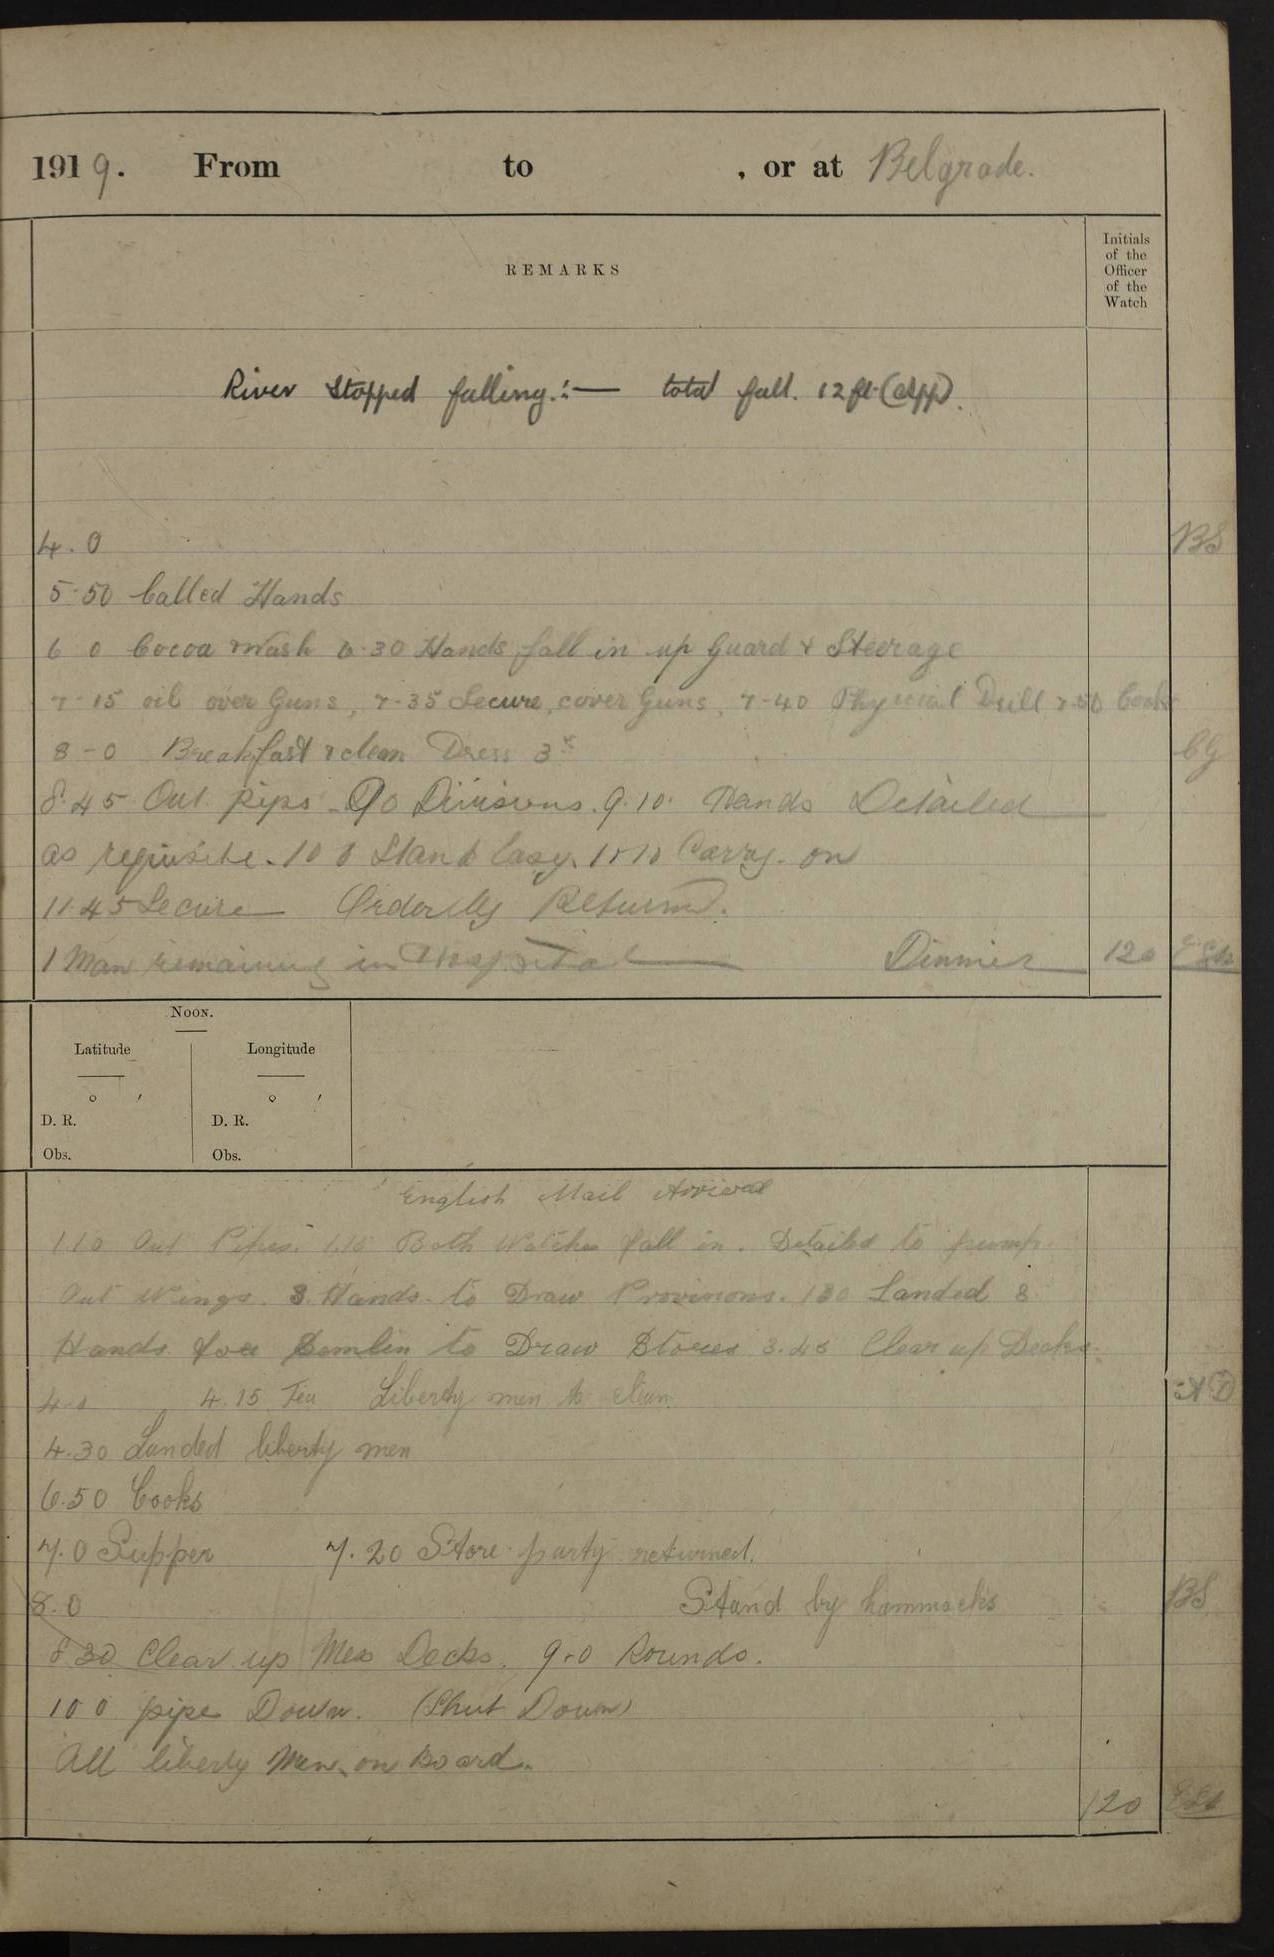 1919. From to , or at Belgrade.
REMARKS
Initials of the Officer of the Watch
River Stopped falling:— total fall. 12 ft (App).
4.0 BS
5.50 Called Hands
6 0 Cocoa Wash 6.30 Hands fall in up Guard & Steerage
7-15 oil over Guns, 7-35 Secure, cover Guns, 7-40 Physical Drill 7.50 Cooks
8-0 Breakfast & clean Dress 3 CG
8.45 Out pipes 9.0 Divisions. 9.10. Hands Detailed
as requisite. 10 0 Stand Easy. 10.10 Carry on
11.45 Secure Orderlys Returned.
1 Man remaining in Hospital Dinner 120
NOON.
Latitude Longitude
° ′ ° ′
D. R. D. R.
Obs. Obs.
English Mail Arrived
1.10 Out Pipes. 1.15 Both Watches fall in. Detailed to pump
Out Wings. 3 Hands to Draw Provisions. 1.30 Landed 8
Hands for to Draw Stores 3.45 Clear up Decks.
4.0 4.15 Tea Liberty men to clean AD
4.30 Landed liberty men
6.50 Cooks
7.0 Supper 7.20 Store party returned.
8.0 Stand by hammocks BS
8 30 Clear up Mess Decks. 9.0 Rounds.
10 0 pipe Down. (Shut Down)
All liberty Men on Board.
120